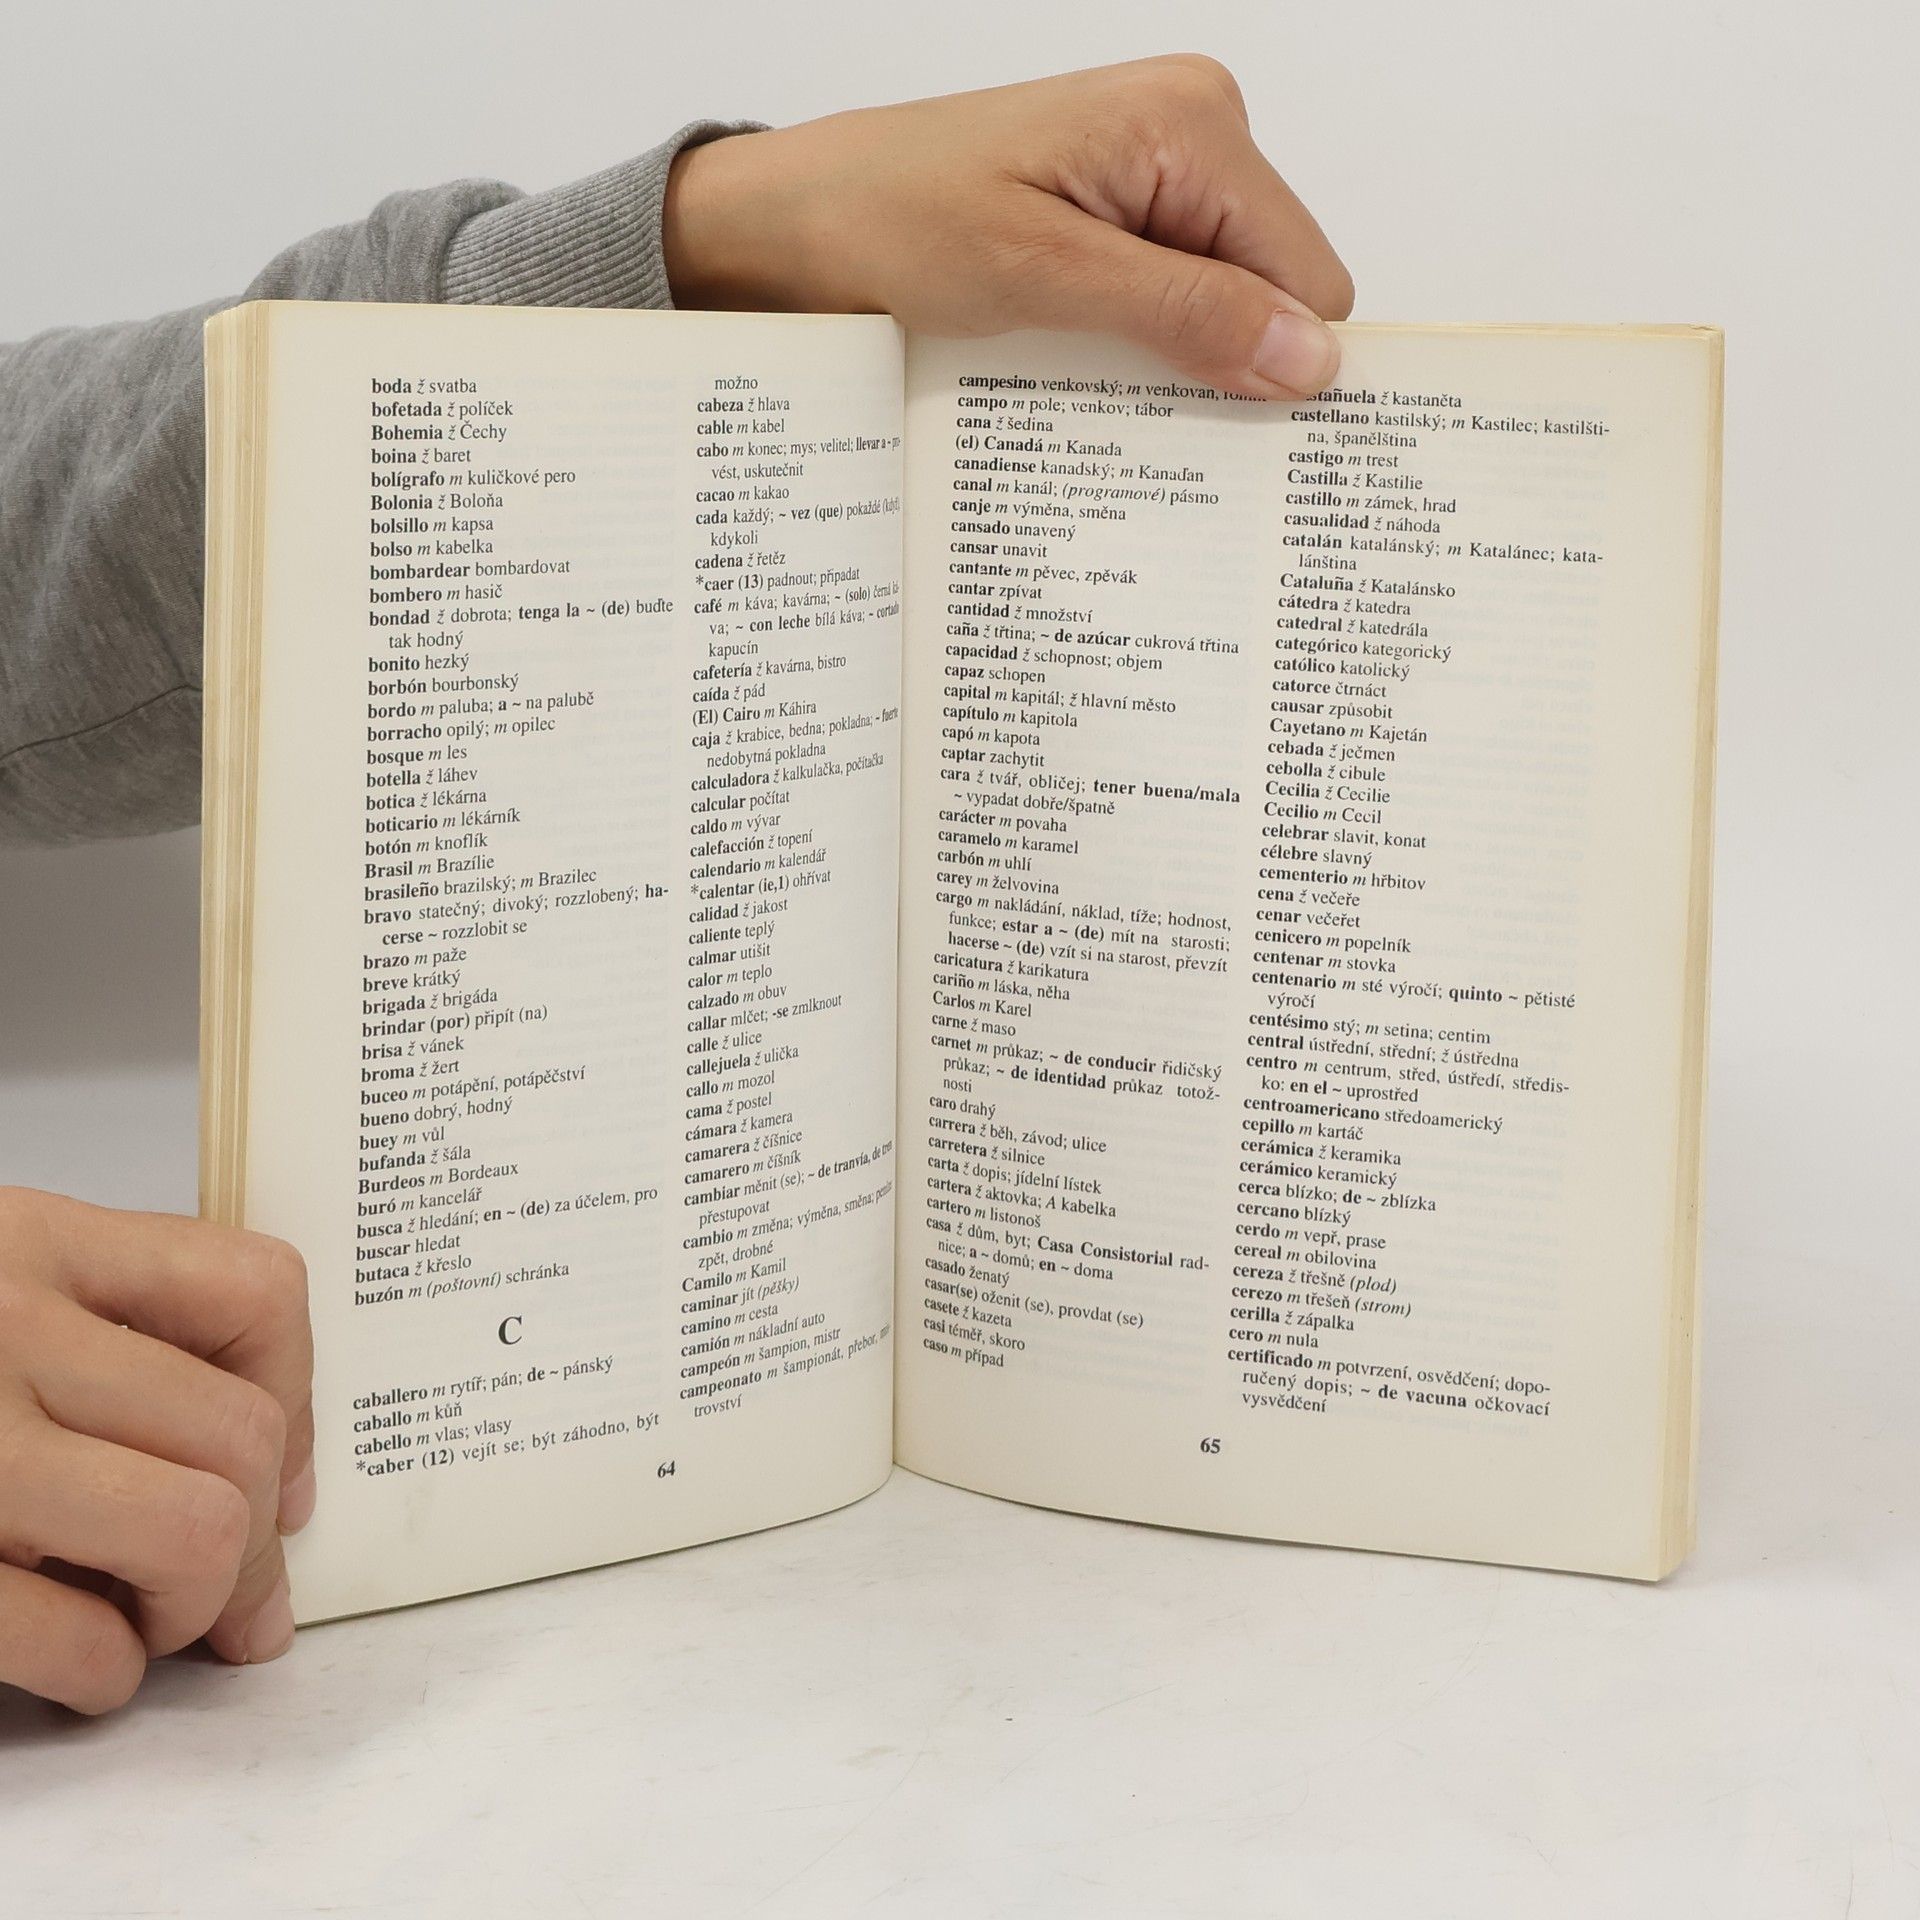 boda ž svatba
bofetada ž políček
Bohemia ž Čechy
boina ž baret
bolígrafo m kuličkové pero
Bolonia ž Boloňa
bolsillo m kapsa
bolso m kabelka
bombardear bombardovat
bombero m hasič
bondad ž dobrota; tenga la ~ (de) buďte
tak hodný
bonito hezký
borbón bourbonský
bordo m paluba; a ~ na palubě
borracho opilý; m opilec
bosque m les
botella ž láhev
botica ž lékárna
boticario m lékárník
botón m knoflík
Brasil m Brazílie
brasileño brazilský; m Brazilec
bravo statečný; divoký; rozzlobený; ha-
cerse ~ rozzlobit se
brazo m paže
breve krátký
brigada ž brigáda
brindar (por) připít (na)
brisa ž vánek
broma ž žert
buceo m potápění, potápěčství
bueno dobrý, hodný
buey m vůl
bufanda ž šála
Burdeos m Bordeaux
buró m kancelář
busca ž hledání; en ~ (de) za účelem, pro
buscar hledat
butaca ž křeslo
buzón m (poštovní) schránka
C
caballero m rytíř; pán; de ~ pánský
caballo m kůň
cabello m vlas; vlasy
*caber (12) vejít se; být záhodno, být
možno
cabeza ž hlava
cable m kabel
cabo m konec; mys; velitel; llevar a ~ pro
vést, uskutečnit
cacao m kakao
cada každý; ~ vez (que) pokaždé (když)
kdykoli
cadena ž řetěz
*caer (13) padnout; připadat
café m káva; kavárna; ~ (solo) černá ká-
va; ~ con leche bílá káva; ~ cortado
kapucín
cafetería ž kavárna, bistro
caída ž pád
(El) Cairo m Káhira
caja ž krabice, bedna; pokladna; ~ fuerte
nedobytná pokladna
calculadora ž kalkulačka, počítačka
calcular počítat
caldo m vývar
calefacción ž topení
calendario m kalendář
*calentar (ie,1) ohřívat
calidad ž jakost
caliente teplý
calmar utišit
calor m teplo
calzado m obuv
callar mlčet; -se zmlknout
calle ž ulice
callejuela ž ulička
callo m mozol
cama ž postel
cámara ž kamera
camarera ž číšnice
camarero m číšník
cambiar měnit (se); ~ de tranvía, de tren
přestupovat
cambio m změna; výměna, směna; peníze
zpět, drobné
Camilo m Kamil
caminar jít (pěšky)
camino m cesta
camión m nákladní auto
campeón m šampion, mistr
campeonato m šampionát, přebor, mis-
trovství
64
campesino venkovský; m venkovan,
campo m pole; venkov; tábor
cana ž šedina
(el) Canadá m Kanada
canadiense kanadský; m Kanaďan
canal m kanál; (programové) pásmo
canje m výměna, směna
cansado unavený
cansar unavit
cantante m pěvec, zpěvák
cantar zpívat
cantidad ž množství
caña ž třtina; ~ de azúcar cukrová třtina
capacidad ž schopnost; objem
capaz schopen
capital m kapitál; ž hlavní město
capítulo m kapitola
capó m kapota
captar zachytit
cara ž tvář, obličej; tener buena/mala
~ vypadat dobře/špatně
carácter m povaha
caramelo m karamel
carbón m uhlí
carey m želvovina
cargo m nakládání, náklad, tíže; hodnost,
funkce; estar a ~ (de) mít na starosti;
hacerse ~ (de) vzít si na starost, převzít
caricatura ž karikatura
cariño m láska, něha
Carlos m Karel
carne ž maso
carnet m průkaz; ~ de conducir řidičský
průkaz; ~ de identidad průkaz totož-
nosti
caro drahý
carrera ž běh, závod; ulice
carretera ž silnice
carta ž dopis; jídelní lístek
cartera ž aktovka; A kabelka
cartero m listonoš
casa ž dům, byt; Casa Consistorial rad-
nice; a ~ domů; en ~ doma
casado ženatý
casar(se) oženit (se), provdat (se)
casete ž kazeta
casi téměř, skoro
caso m případ
castañuela ž kastaněta
castellano kastilský; m Kastilec; kastilšti-
na, španělština
castigo m trest
Castilla ž Kastilie
castillo m zámek, hrad
casualidad ž náhoda
catalán katalánský; m Katalánec; kata-
lánština
Cataluña ž Katalánsko
cátedra ž katedra
catedral ž katedrála
categórico kategorický
católico katolický
catorce čtrnáct
causar způsobit
Cayetano m Kajetán
cebada ž ječmen
cebolla ž cibule
Cecilia ž Cecilie
Cecilio m Cecil
celebrar slavit, konat
célebre slavný
cementerio m hřbitov
cena ž večeře
cenar večeřet
cenicero m popelník
centenar m stovka
centenario m sté výročí; quinto ~ pětisté
výročí
centésimo stý; m setina; centim
central ústřední, střední; ž ústředna
centro m centrum, střed, ústředí, středis-
ko: en el ~ uprostřed
centroamericano středoamerický
cepillo m kartáč
cerámica ž keramika
cerámico keramický
cerca blízko; de ~ zblízka
cercano blízký
cerdo m vepř, prase
cereal m obilovina
cereza ž třešně (plod)
cerezo m třešeň (strom)
cerilla ž zápalka
cero m nula
certificado m potvrzení, osvědčení; dopo-
ručený dopis; ~ de vacuna očkovací
vysvědčení
65